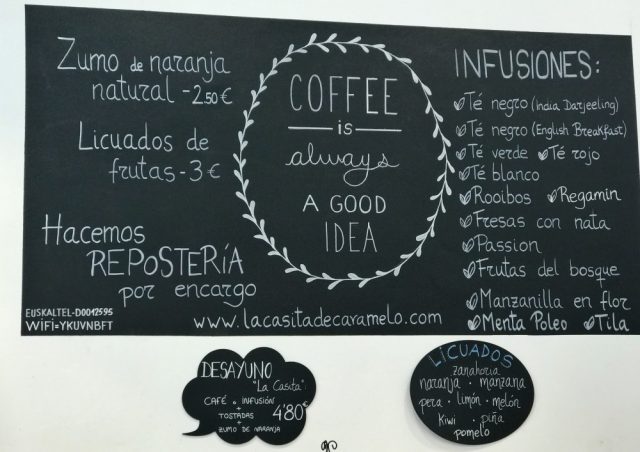 Zumo de naranja
natural - 2.50€
Licuados de
frutas - 3 €
Hacemos
REPOSTERÍA
por encargo
EUSKALTEL-D0012595
WiFi=YKUVNBFT
COFFEE
is
always
A GOOD
IDEA
www.lacasitadecaramelo.com
INFUSIONES:
Té negro (India Darjeeling)
Té negro (English Breakfast)
Té verde Té rojo
Té blanco
Rooibos Regamin
Fresas con nata
Passion
Frutas del bosque
Manzanilla en flor
Menta Poleo Tila
DESAYUNO
"La Casita":
CAFÉ o INFUSIÓN
+
TOSTADAS 4'80€
+
ZUMO DE NARANJA
LICUADOS
zanahoria
naranja · manzana
pera · limón · melón
Kiwi · piña
pomelo